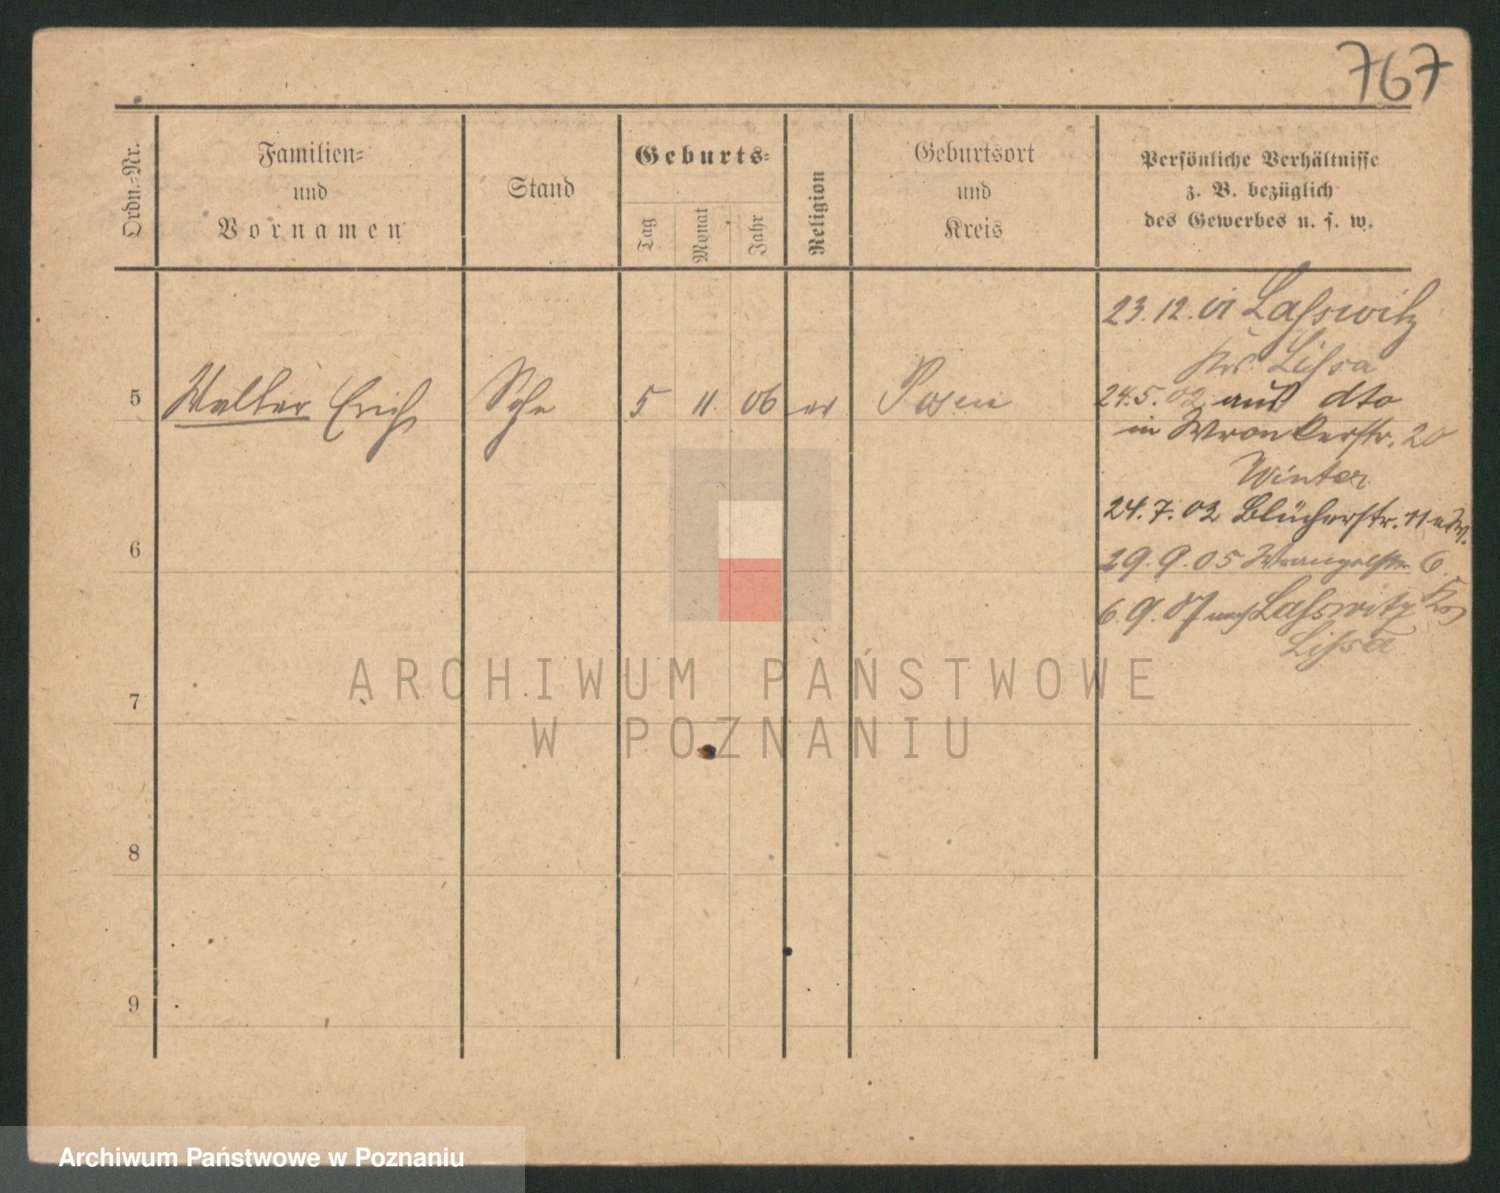 767
Ordn.-Nr.
Familien-
und
Vornamen
Stand
Geburts-
Tag
Monat
Jahr
Religion
Geburtsort
und
Kreis
Persönliche Verhältnisse
z. B. bezüglich
des Gewerbes u. s. w.
23.12.01 Lasswitz
Krs Lissa
5 Walter Erich Sohn 5 11 06 ev Posen
24.5.02 aus dto
in Wronkerstr. 20
Winter
24.7.02 Blücherstr. 11
6
29.9.05 Wrangelstr. 6
6.9.07 nach Lasswitz Krs
Lissa
ARCHIWUM PAŃSTWOWE
7
W POZNANIU
8
9
Archiwum Państwowe w Poznaniu